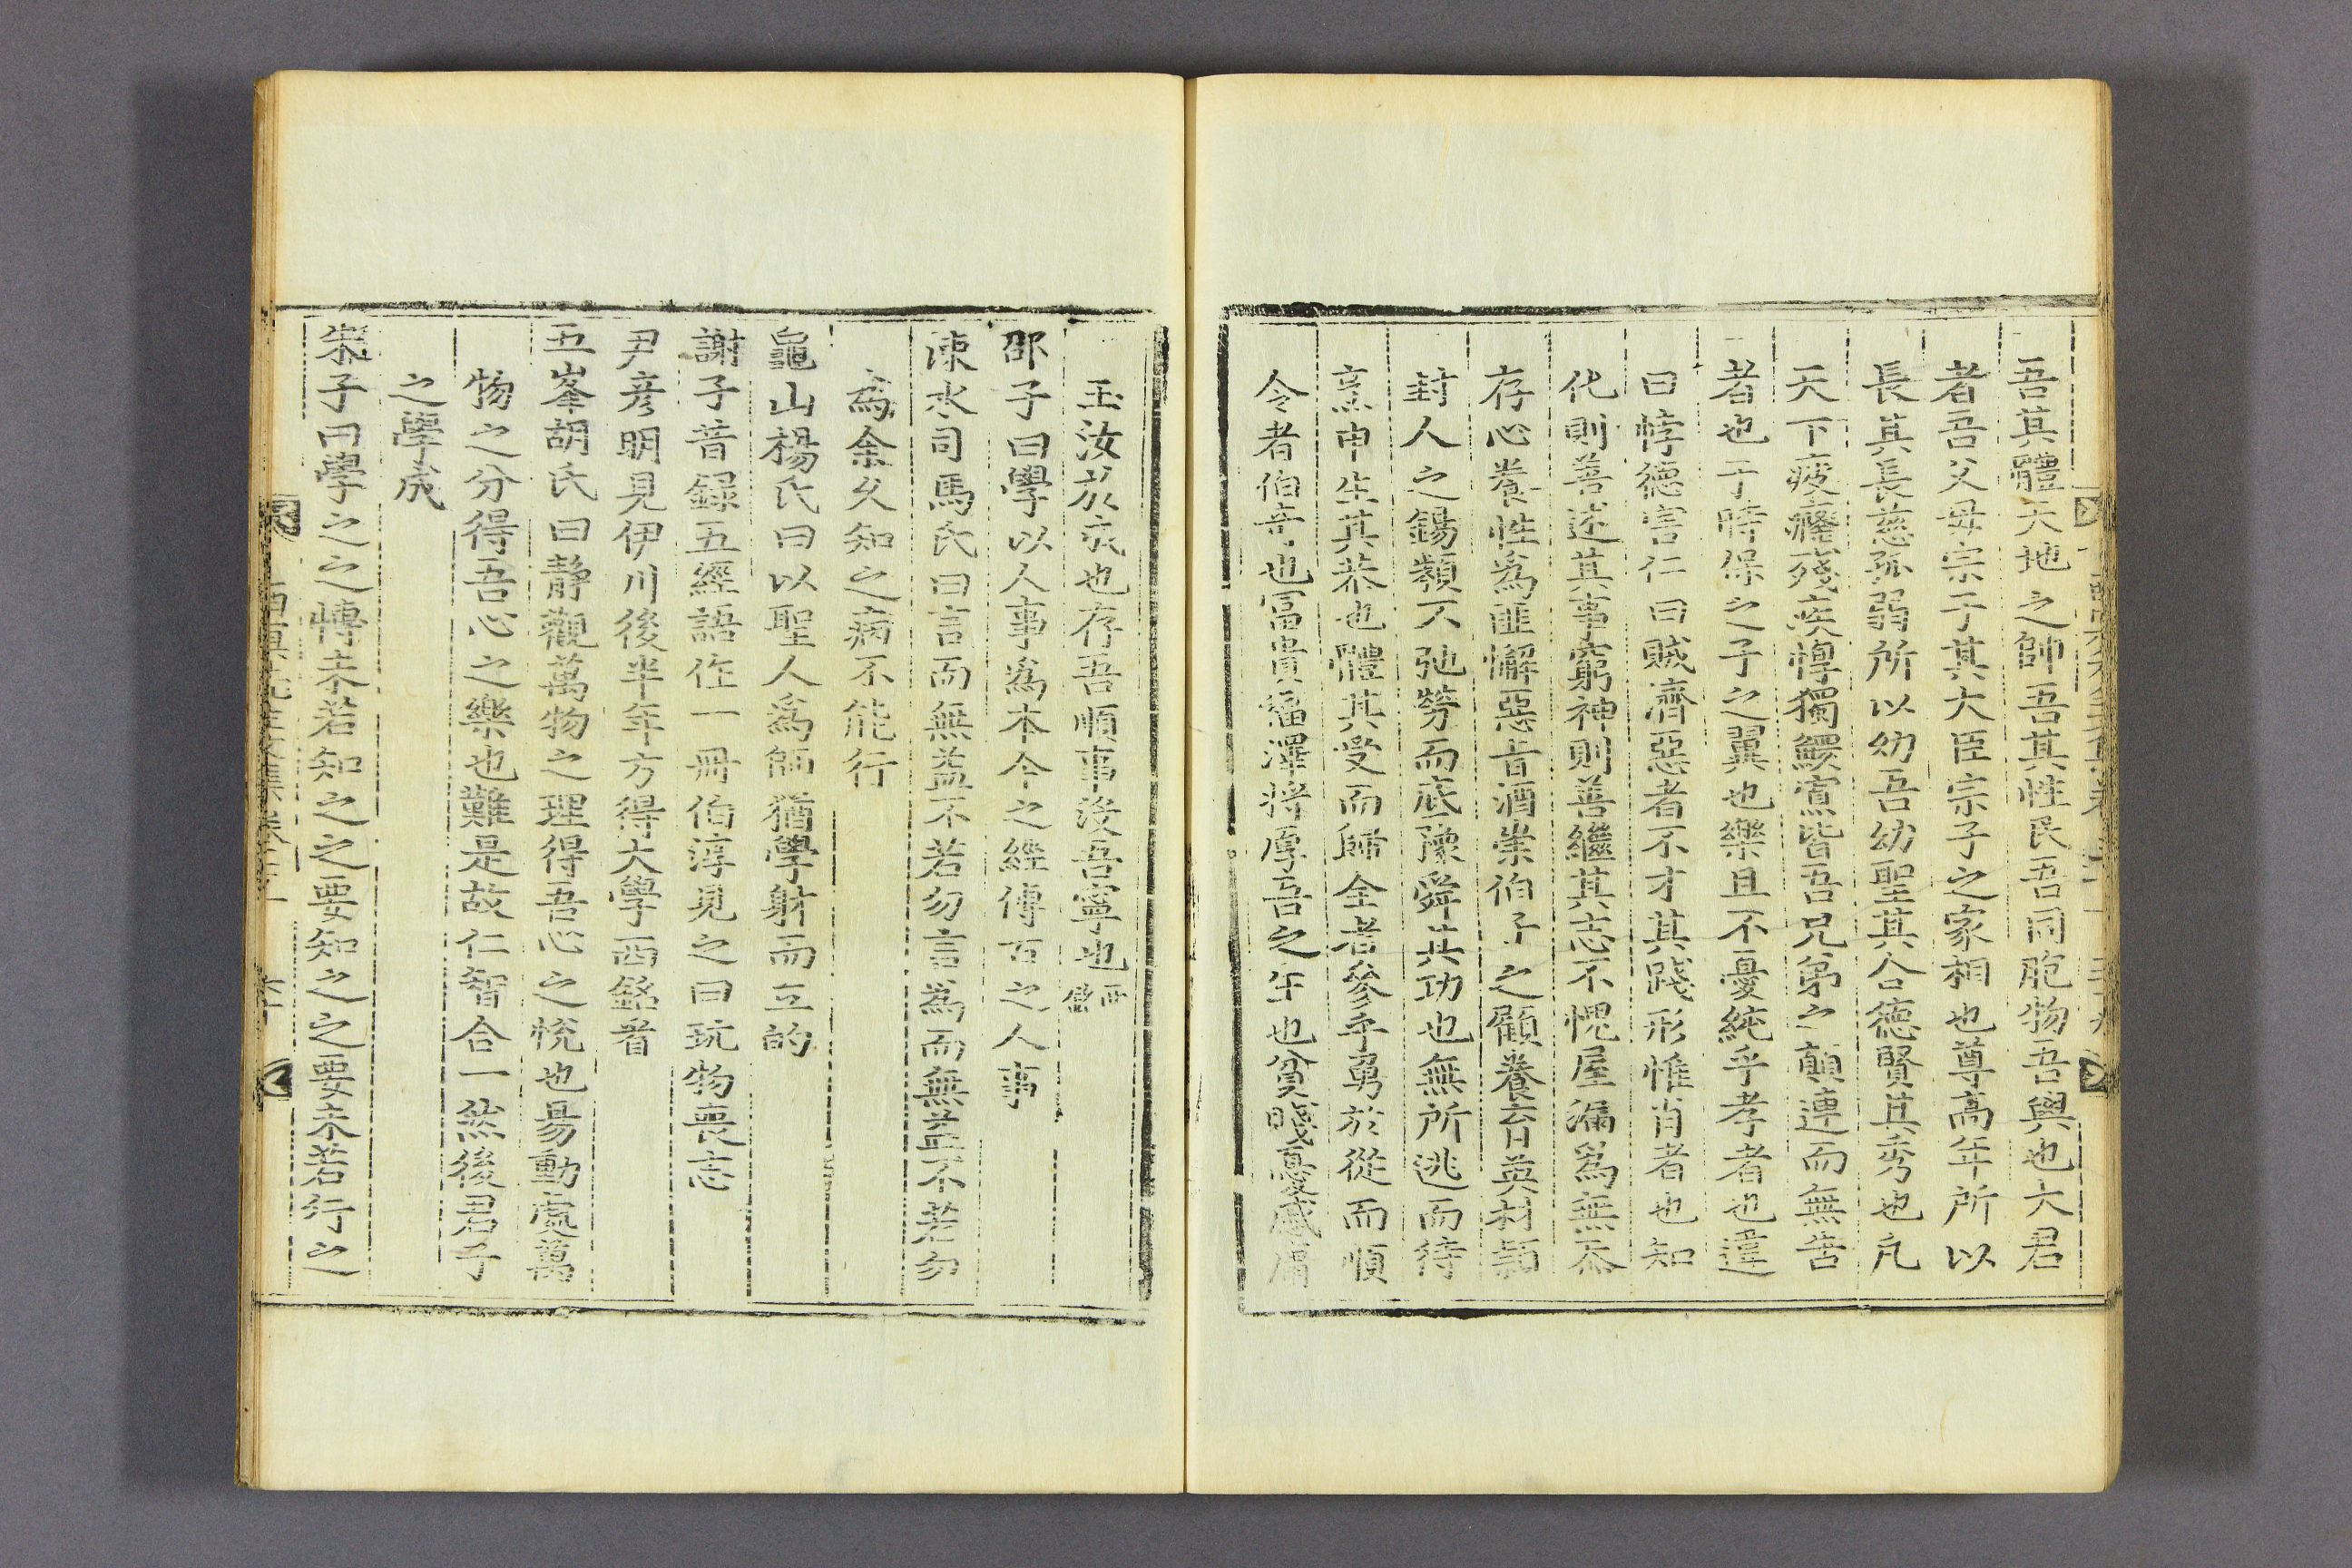 吾其體天地之帥吾其性民吾同胞物吾與也大君
者吾父母宗子其大臣宗子之家相也尊高年所以
長其長慈孤弱所以幼吾幼聖其合德賢其秀也凡
天下疲癃殘疾惸獨鰥寡皆吾兄弟之顛連而無告
者也于時保之子之翼也樂且不憂純乎孝者也違
曰悖德害仁曰賊濟惡者不才其踐形惟肖者也知
化則善述其事窮神則善繼其志不愧屋漏爲無忝
存心養性爲匪懈惡旨酒崇伯子之顧養育英材潁
封人之錫類不弛勞而底豫舜其功也無所逃而待
烹申生其恭也體其受而歸全者參乎勇於從而順
令者伯奇也富貴福澤將厚吾之生也貧賤憂戚庸
玉汝於成也存吾順事沒吾寧也西銘
邵子曰學以人事爲本今之經傳古之人事
涑水司馬氏曰言而無益不若勿言爲而無益不若勿
爲余久知之病不能行
龜山楊氏曰以聖人爲師猶學射而立的
謝子昔録五經語作一冊伯淳見之曰玩物喪志
尹彦明見伊川後半年方得大學西銘看
五峯胡氏曰靜觀萬物之理得吾心之悅也易動處萬
物之分得吾心之樂也難是故仁智合一然後君子
之學成
朱子曰學之之博未若知之之要知之之要未若行之